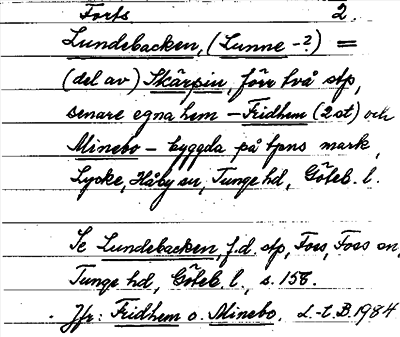 Forts 2.
Lundebacken, (Lunne-?) =
(del av) Skärpin, förr två stp,
senare egna hem - Fridhem (2 st) och
Minebo - byggda på tpns mark,
Lycke, Håby sn, Tunge hd, Göteb. l.
Se Lundebacken, f.d. stp, Foss, Foss sn,
Tunge hd, Göteb. l., s. 158.
Jfr: Fridhem o. Minebo. L.-L.B. 1984